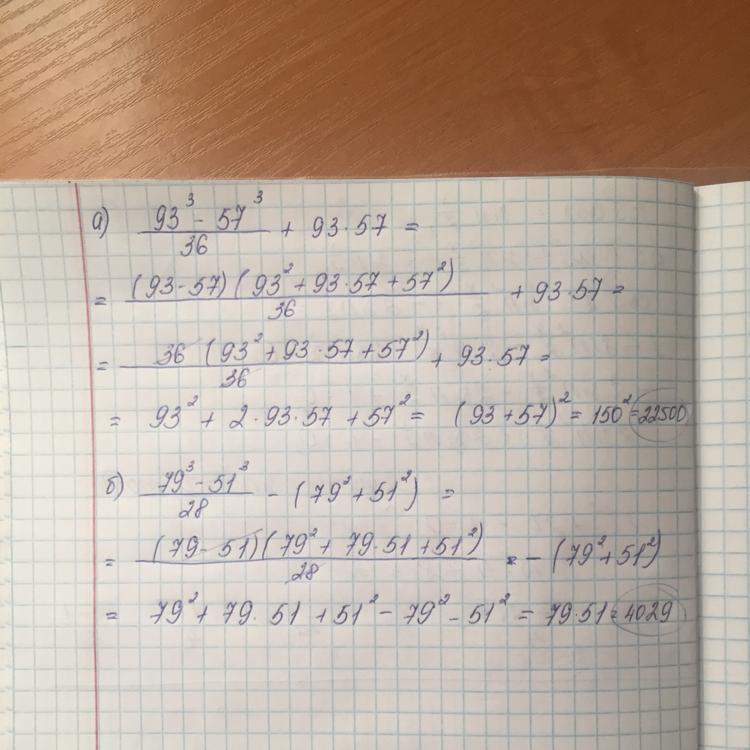 а) (93³ - 57³)/36 + 93·57 =
= ((93-57)(93² + 93·57 + 57²))/36 + 93·57 =
= (36 (93² + 93·57 + 57²))/36 + 93·57 =
= 93² + 2·93·57 + 57² = (93 + 57)² = 150² = 22500
б) (79³ - 51³)/28 - (79² + 51²) =
= ((79 - 51)(79² + 79·51 + 51²))/28 - (79² + 51²)
= 79² + 79·51 + 51² - 79² - 51² = 79·51 = 4029